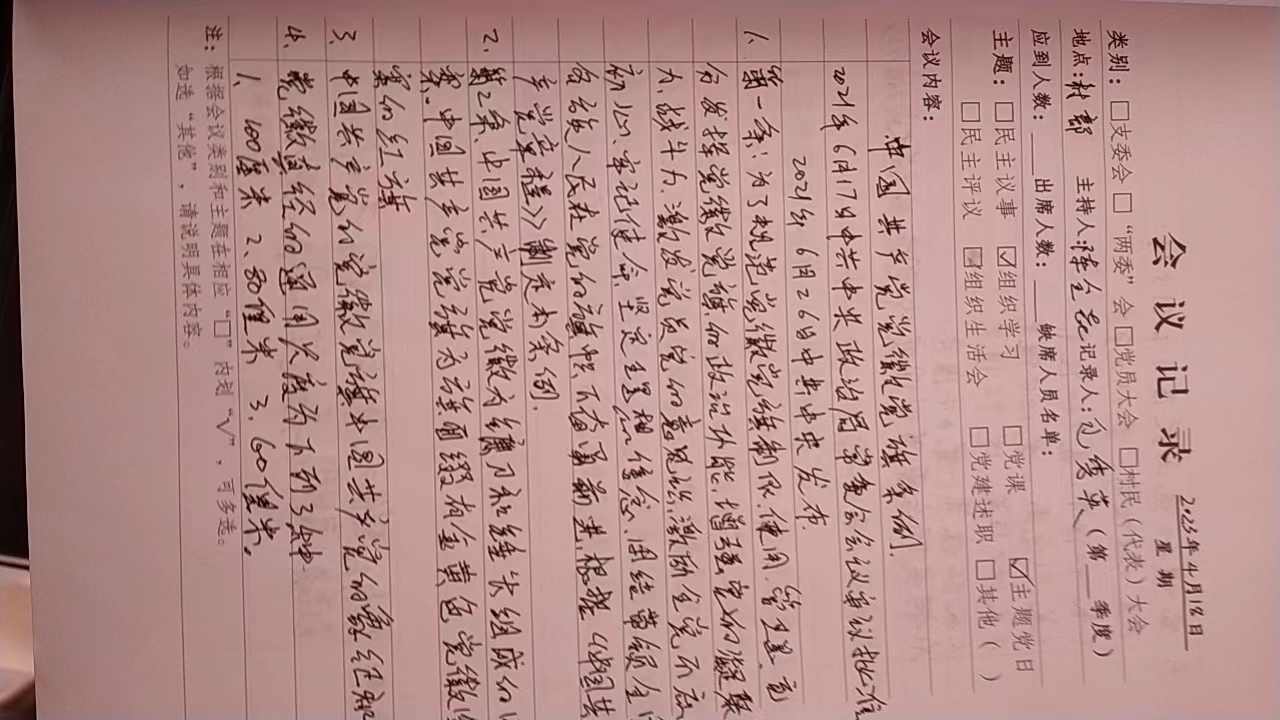 会议记录
2025年4月18日
星期
类别：□支委会 □“两委”会 □党员大会 □村民（代表）大会
地点：村部 主持人：陈全 记录人：秀英（第___季度）
应到人数：____出席人数：____缺席人员名单：
主题：□民主议事 ☑组织学习 □党课 ☑主题党日
□民主评议 □组织生活会 □党建述职 □其他（ ）
会议内容：
中国共产党党徽党旗条例
2021年6月17日中共中央政治局常委会会议审议批准
2021年6月26日中共中央发布
1、第一条：为了规范党徽党旗制作、使用、管理，充
分发挥党徽党旗的政治功能，增强党的凝聚
力，战斗力，激发党员党的意识，激励全党不忘
初心、牢记使命，坚定理想信念，团结带领全
各族人民在党的旗帜下奋勇前进，根据《中国共
产党章程》制定本条例.
2、第2条，中国共产党党徽为镰刀和锤头组成的
案。中国共产党党旗为旗面缀有金黄色党徽
案的红旗
3、中国共产党的党徽党旗中国共产党的象征和
4、党徽直径的通用尺度为下列3种
1、100厘米 2、80厘米 3、60厘米。
注：根据会议类别和主题在相应“□”内划“√”，可多选。
如选“其他”，请说明具体内容。